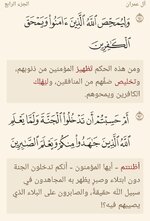 آل عمران
الجزء الرابع
وَلِيُمَحِّصَ ٱللَّهُ ٱلَّذِينَ ءَامَنُوا۟ وَيَمْحَقَ
ٱلْكَٰفِرِينَ
ومن هذه الحكم تطهيرُ المؤمنين من ذنوبهم،
وتخليص صفِّهم من المنافقين، وليُهْلِكَ
الكافرين ويمحوهم.
أَمْ حَسِبْتُمْ أَن تَدْخُلُوا۟ ٱلْجَنَّةَ وَلَمَّا يَعْلَمِ
ٱللَّهُ ٱلَّذِينَ جَٰهَدُوا۟ مِنكُمْ وَيَعْلَمَ ٱلصَّٰبِرِينَ
أظننتم - أيها المؤمنون - أنكم تدخلون الجنة
دون ابتلاء وصبرٍ يظهر به المجاهدون في
سبيل الله حقيقةً، والصابرون على البلاء الذي
يصيبهم فيه؟!